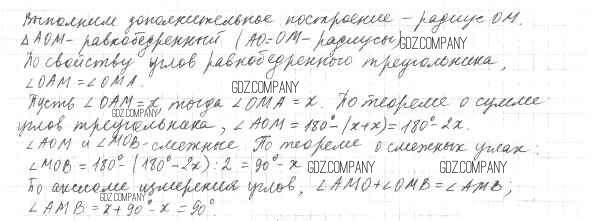 Выполним дополнительное построение – радиус OM.
△AOM – равнобедренный (AO=OM – радиусы) GDZ.COMPANY
По свойству углов равнобедренного треугольника,
∠OAM = ∠OMA. GDZ.COMPANY
Пусть ∠OAM = x, тогда ∠OMA = x. По теореме о сумме
GDZ.COMPANY
углов треугольника, ∠AOM = 180° – (x+x) = 180° – 2x.
∠AOM и ∠MOB – смежные. По теореме о смежных углах:
∠MOB = 180° – (180° – 2x) : 2 = 90° – x GDZ.COMPANY GDZ.COMPANY
По аксиоме измерения углов, ∠AMO + ∠OMB = ∠AMB;
GDZ.COMPANY
∠AMB = x + 90° – x = 90°.